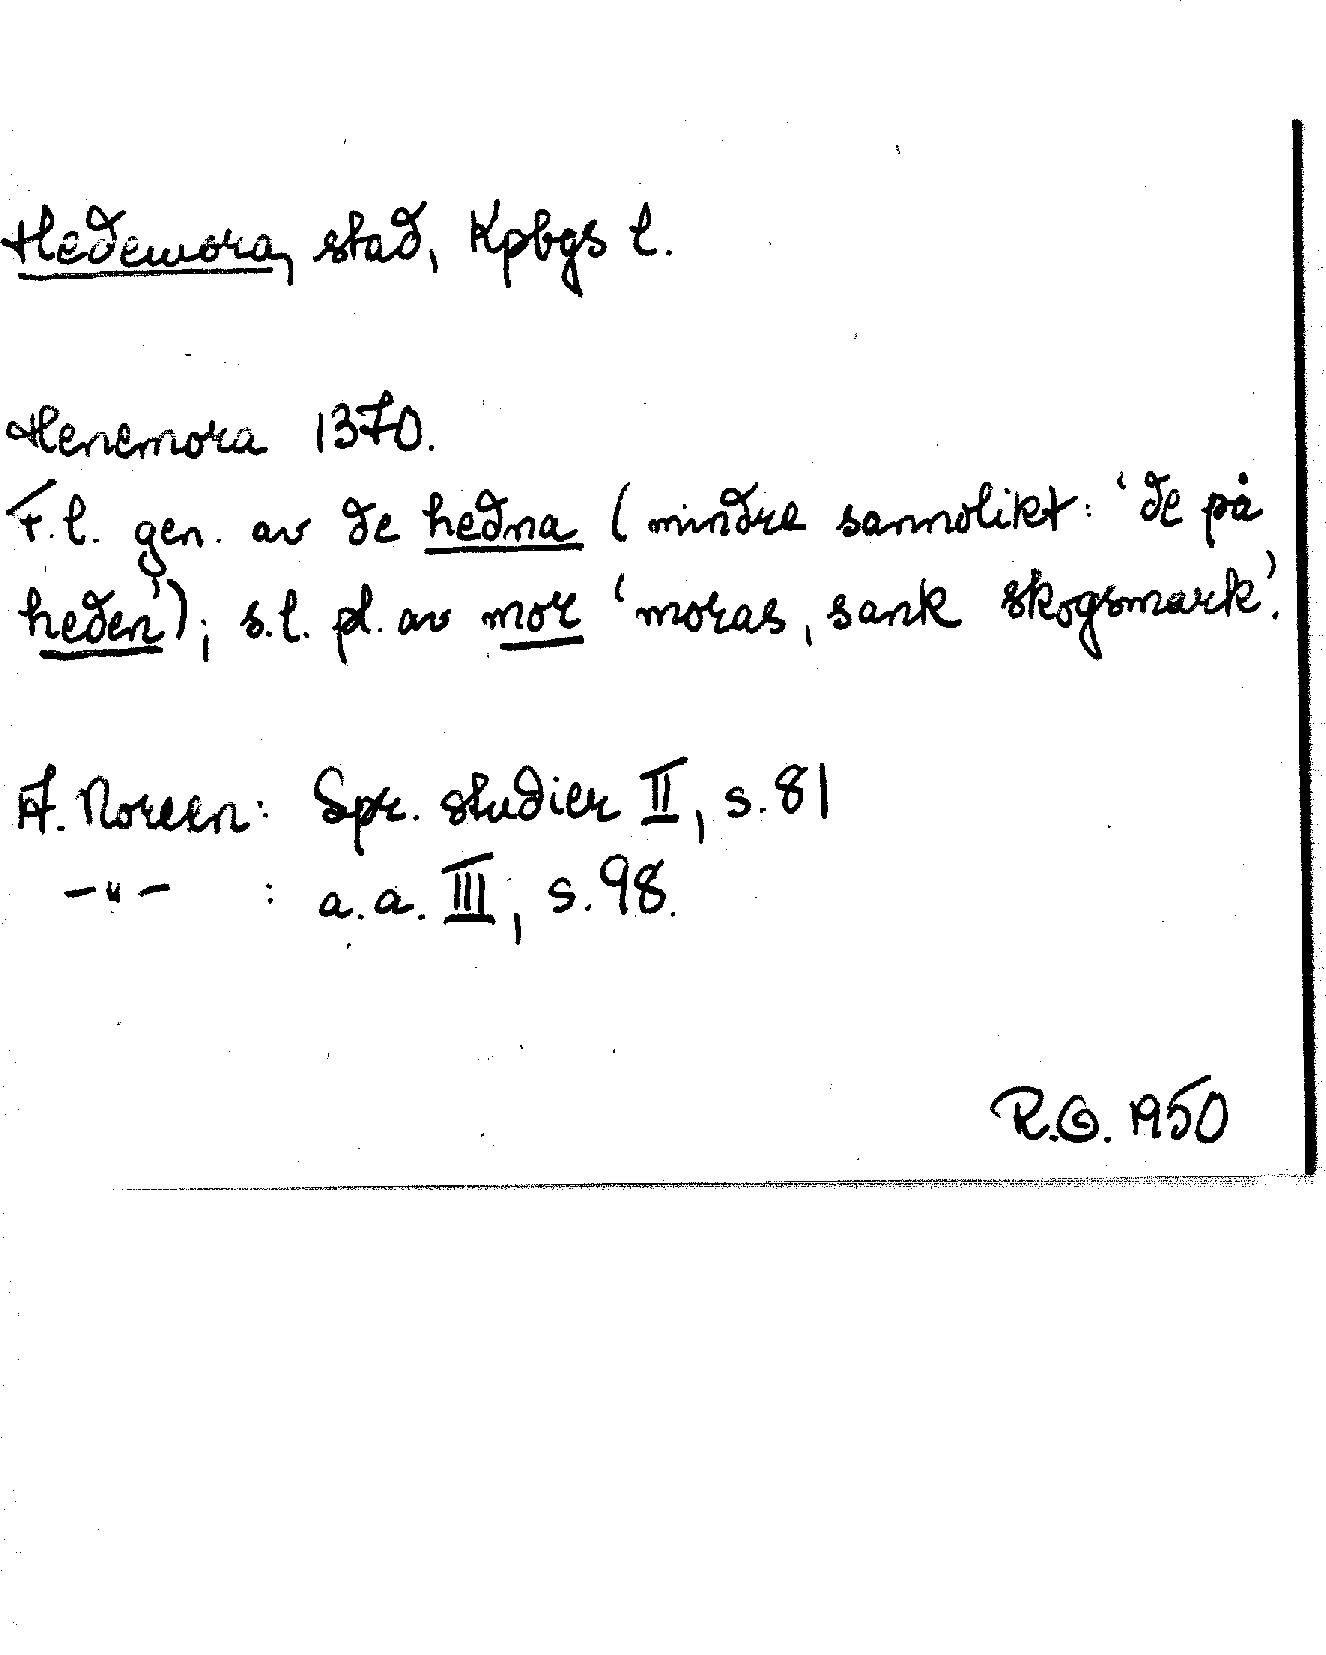 Hedemora, stad, Kpbgs l.
Henemora 1370.
F.l. gen. av de hedna (mindre sannolikt: 'de på
heden'); s.l. pl. av mor 'moras, sank skogsmark'.
A. Noreen: Spr. studier II, s. 81
–"– : a.a. III, s. 98.
R.G. 1950